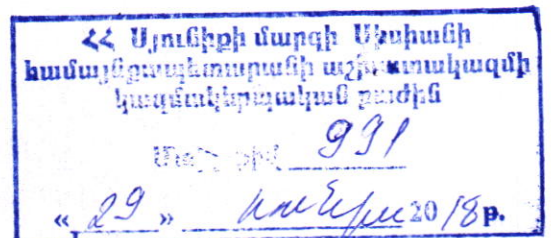 ՀՀ Սյունիքի մարզի Սիսիանի
համայնքապետարանի աշխատակազմի
կազմակերպական բաժին
991
« 29 » հունիս 2018թ.